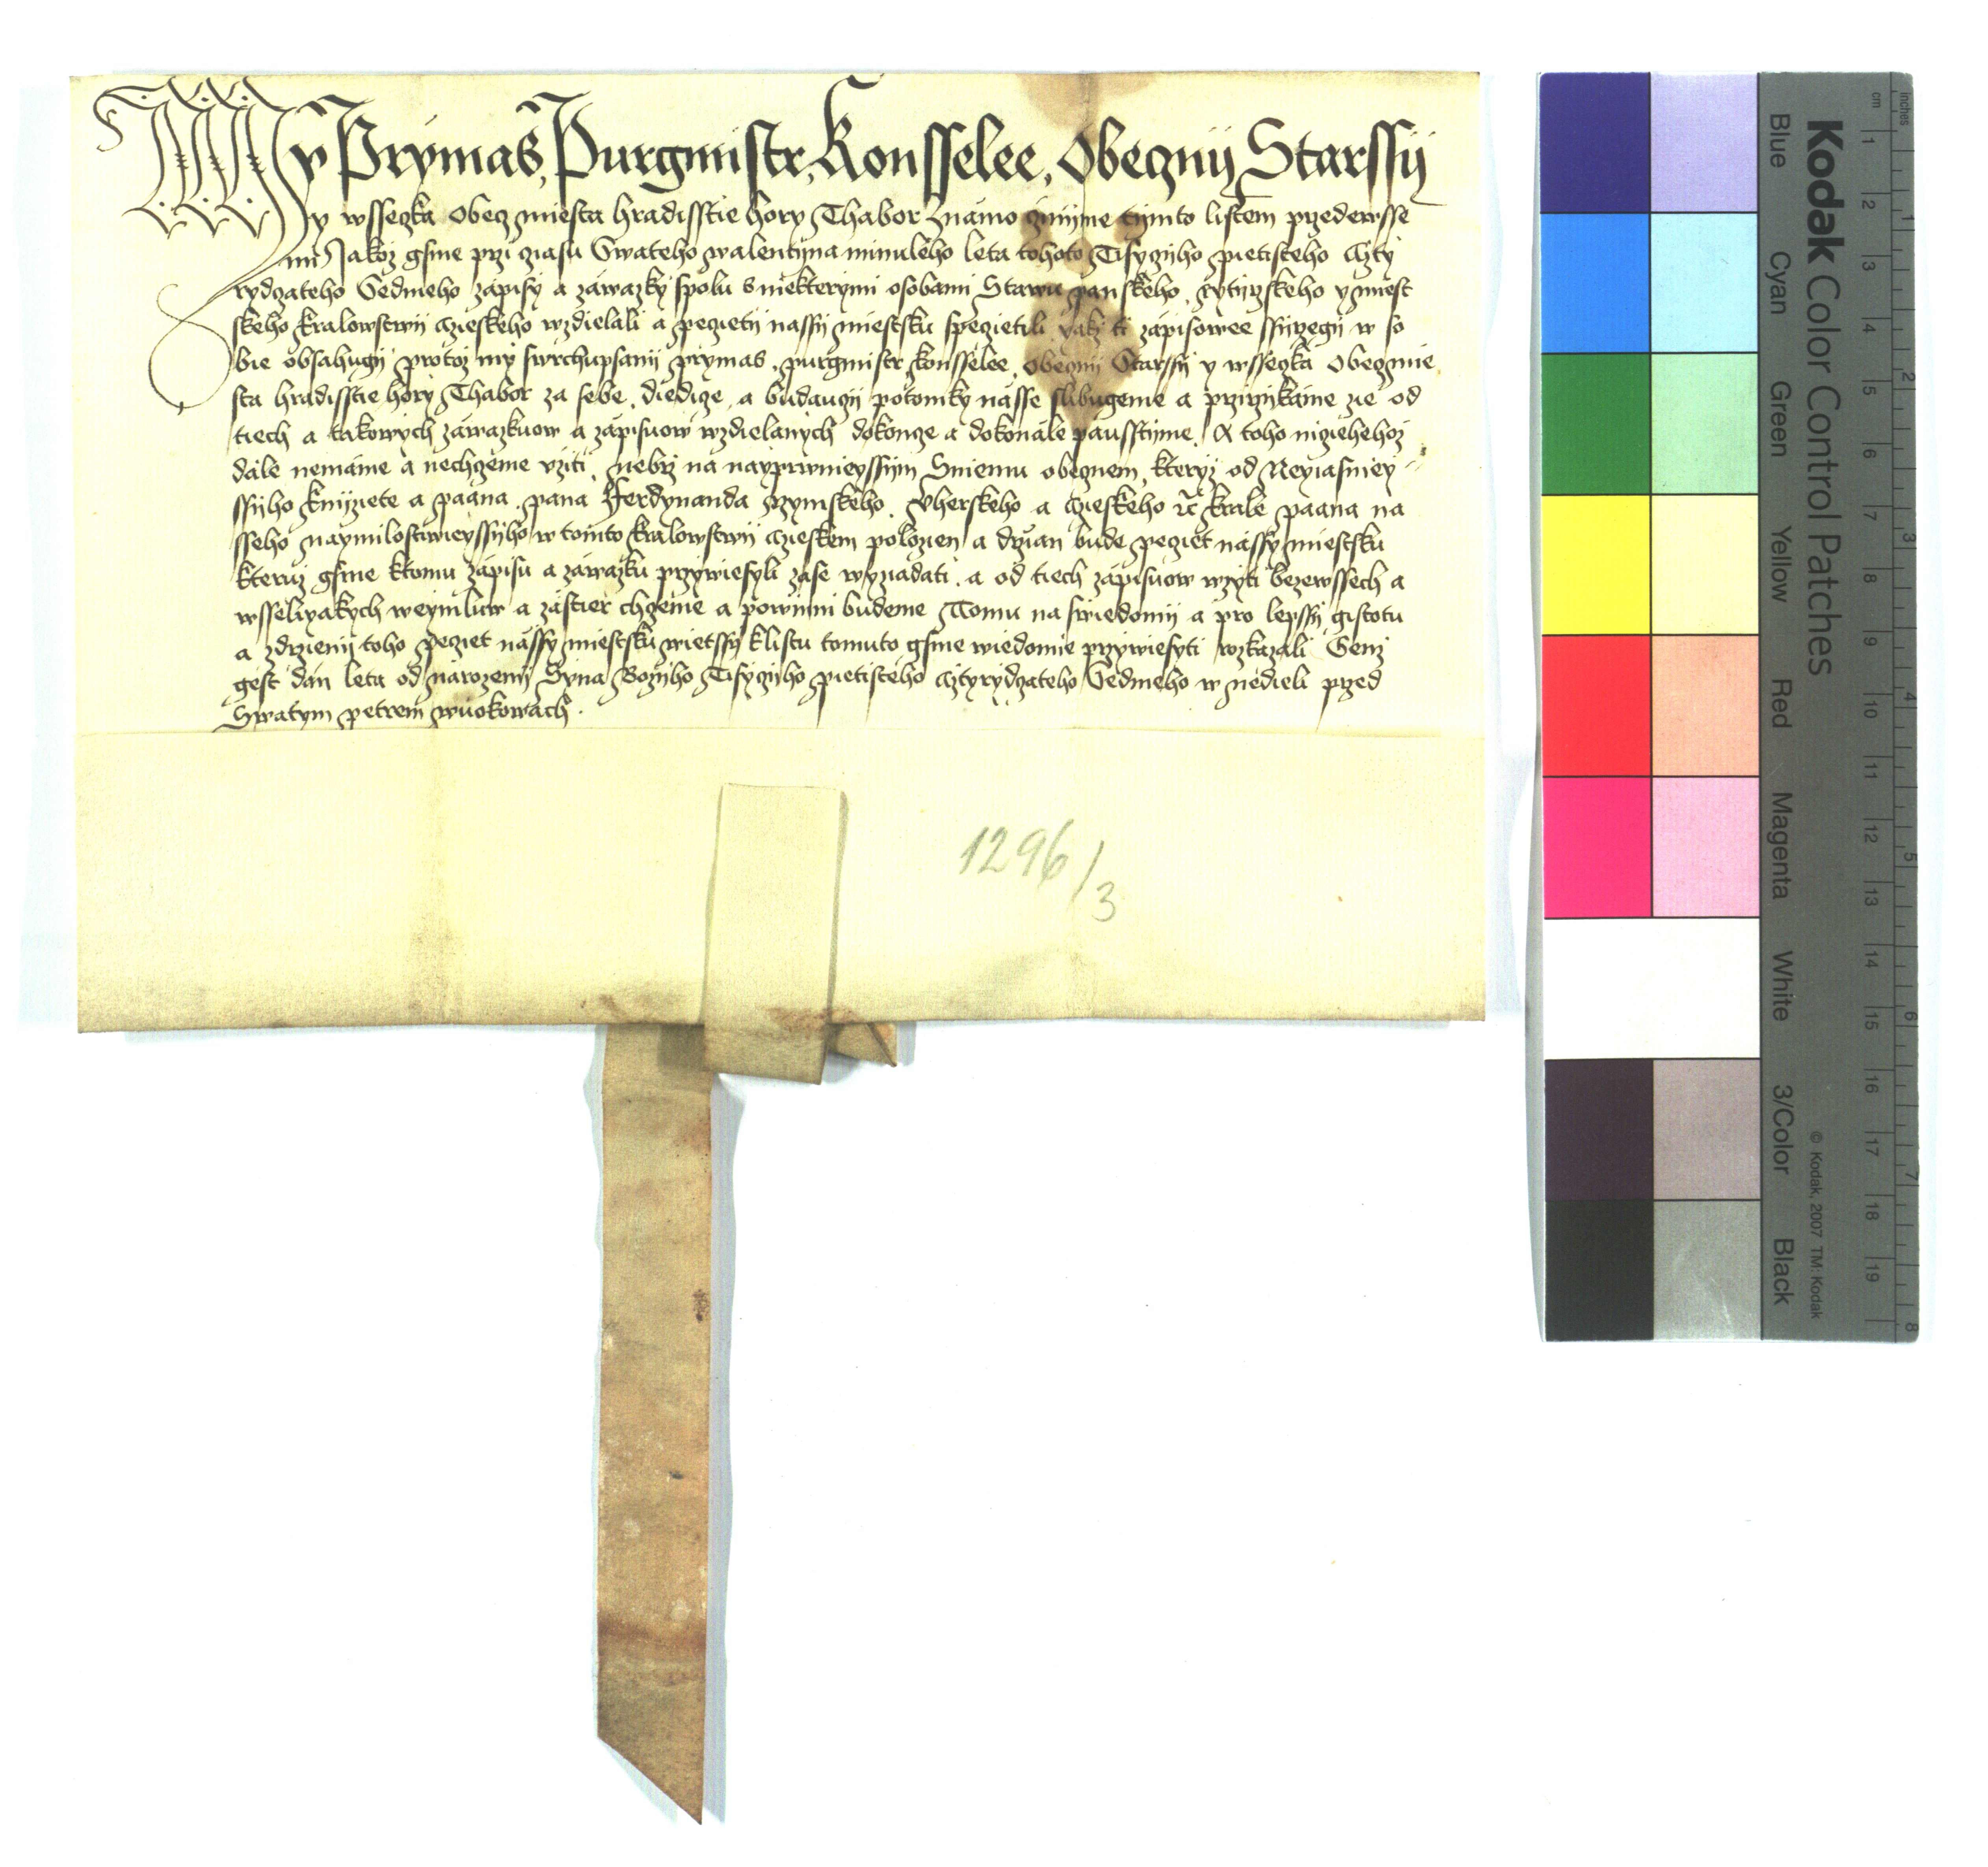 My Prymas, Purgmistr, Konsselee, Obecznij Starssij
y wsseczka Obecz miesta hradisstie hory Thabor Znamo cziníjme tijmto listem przedewsse
mi Jakoz gsme przi cziasu Swateho walentijna minuleho leta tohoto Tisyczijho pietisteho Cžty
rydczateho Sedmeho zapisy a zawazky spolu s niekterymi osobami Stawu panskeho, rytijrzskeho y miest
skeho kralowstwij cžieskeho wzdielali a peczietij nassij miestsku speczietili yakz ti zapisowee ssijrzegij w so
bie obsahugij protoz my swrchupsanij prymas, purgmistr, konsselee, Obecznij Starssij y wsseczka Obecz mie
sta hradisstie hory Thabor za sebe, diedicze, a budauczij potomky nasse slibugeme a przirzijkame zie od
tiech a takowych zawazkuow a zapisuow wzdielanych dokoncze a dokonale pausstijme, A toho nicziehehoz
dale nemame a nechczeme vziti, nebrz na nayprwnieyssijm Sniemu obecznem, kteryz od Neyiasniey
ssijho knijziete a paana, pana Ferdynanda rzymskeho, Vherskeho a cžieskeho ꝛc̃ krale paana na
sseho naymilostiwieyssijho w tomto kralowstwij cžieskem polozien a drzian bude pecziet nassy miestsku
kteruz gsme ktomu zapisu a zawazku przywiesyli zase wyzadati, a od tiech zapisuow wzyti bezewssech a
wsseliyakych weymluw a zastier chczeme a powinni budeme Tomu na swiedomij a pro lepssij gistotu
a zdrzienij toho pecziet nassy miestsku wietssy k listu tomuto gsme wiedomie przywiesyti rozkazali Genz
gest dan leta od narozenij Syna Bozijho Tisyczijho pietisteho cžtyrydczateho Sedmeho w nedieli przed
Swatym petrem w uokowach.
1296/3
Kodak Color Control Patches
Blue
Cyan
Green
Yellow
Red
Magenta
White
3/Color
Black
© Kodak, 2007 TM: Kodak
cm 1 2 3 4 5 6 7 8 9 10 11 12 13 14 15 16 17 18 19
inches 1 2 3 4 5 6 7 8